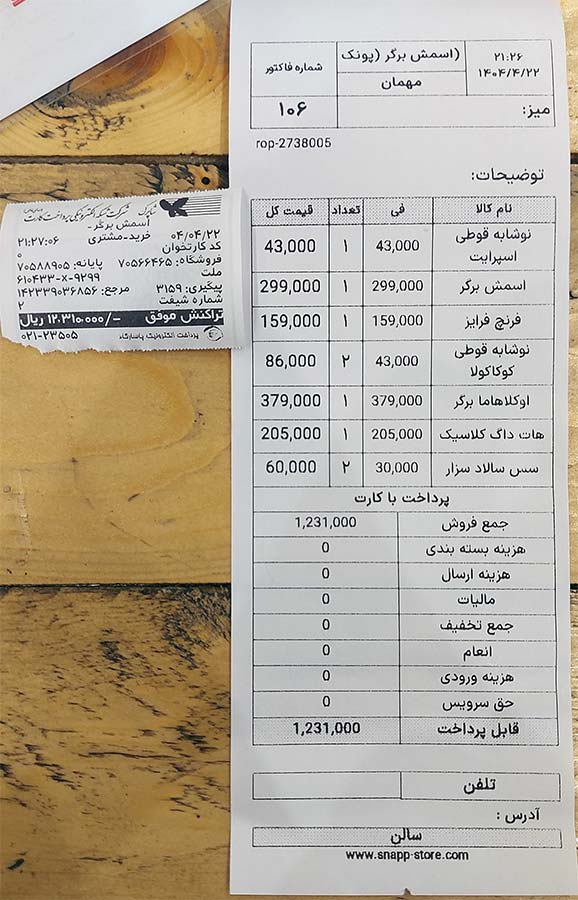 ۲۱:۲۶
۱۴۰۴/۴/۲۲
(اسمش برگر (پونک
مهمان
شماره فاکتور
میز:
۱۰۶
rop-2738005
توضیحات:
نام کالا فی تعداد قیمت کل
نوشابه قوطی اسپرایت 43,000 ۱ 43,000
اسمش برگر 299,000 ۱ 299,000
فرنچ فرایز 159,000 ۱ 159,000
نوشابه قوطی کوکاکولا 43,000 ۲ 86,000
اوکلاهاما برگر 379,000 ۱ 379,000
هات داگ کلاسیک 205,000 ۱ 205,000
سس سالاد سزار 30,000 ۲ 60,000
پرداخت با کارت
جمع فروش 1,231,000
هزینه بسته بندی 0
هزینه ارسال 0
مالیات 0
جمع تخفیف 0
انعام 0
هزینه ورودی 0
حق سرویس 0
قابل پرداخت 1,231,000
تلفن
آدرس :
سالن
www.snapp-store.com
شاپرک شرکت شبکه الکترونیکی پرداخت کارت
اسمش برگر-
۰۴/۰۴/۲۲ خرید-مشتری ۲۱:۲۷:۰۶
کد کارتخوان ۰
فروشگاه: ۷۰۵۶۶۴۶۵ پایانه: ۷۰۵۸۸۹۰۵
ملت ۶۱۰۴۳۳-X-۹۲۹۹
پیگیری: ۳۱۵۹ مرجع: ۱۴۲۳۳۹۰۳۶۸۵۶
شماره شیفت ۲
تراکنش موفق ۱۲.۳۱۰.۰۰۰/- ریال
پرداخت الکترونیک پاسارگاد ۰۲۱-۲۳۵۰۵